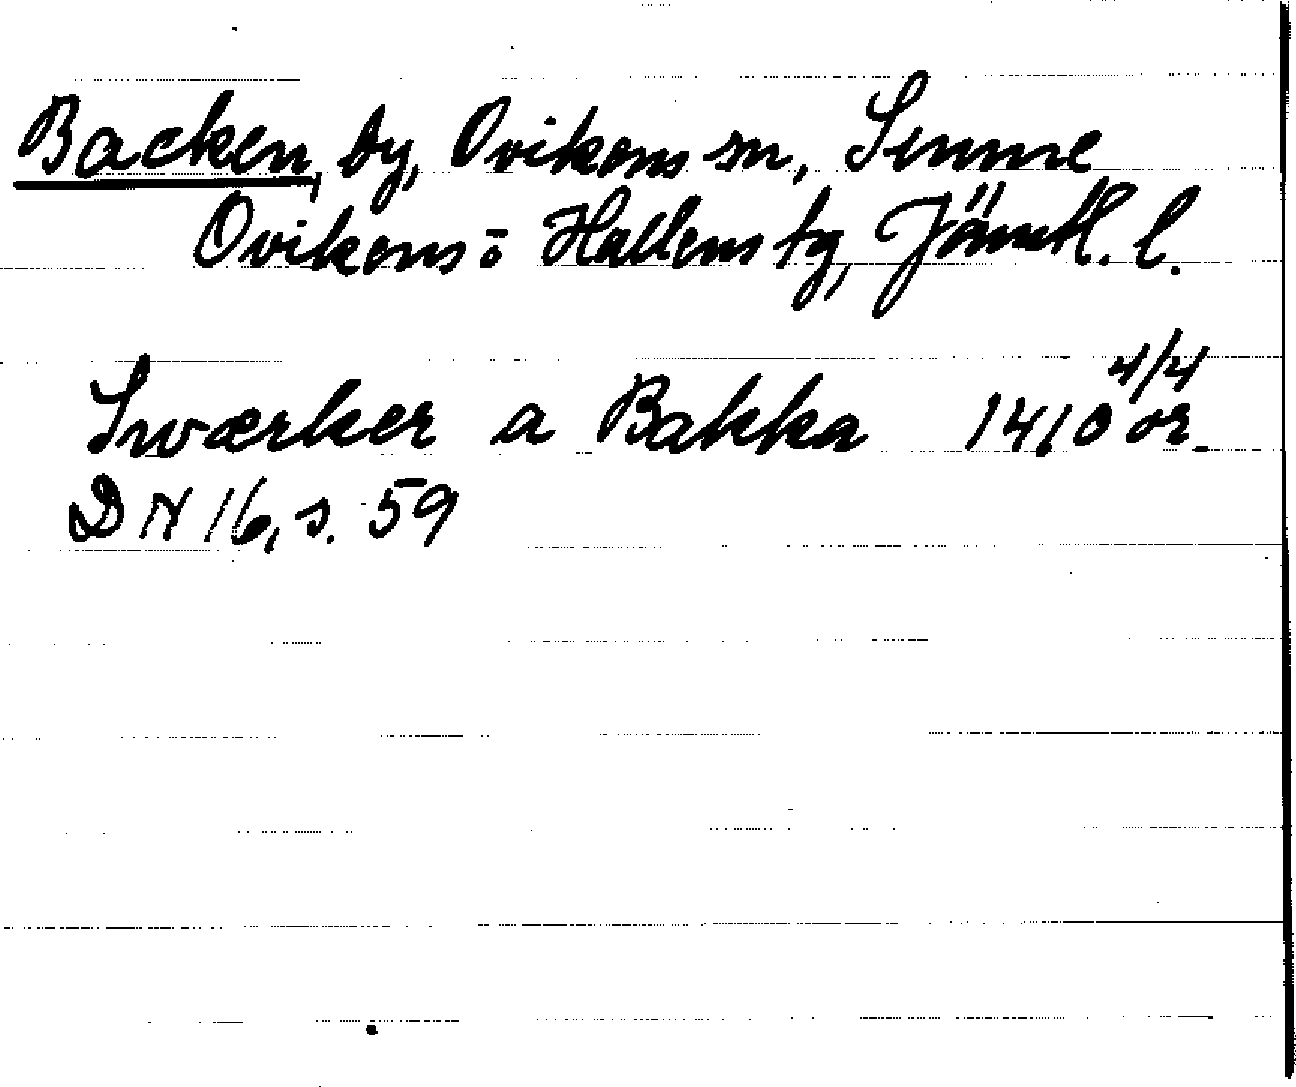 Backen, by, Ovikens sn, Sunne
Ovikens o Hallens tg, Jämtl. l.
Swærker a Bakka 1410 4/4 or.
DN 16, s. 59